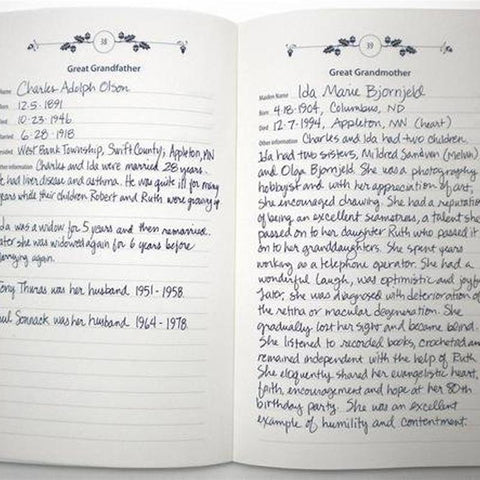 38
Great Grandfather
Name Charles Adolph Olson
Born 12-5-1891
Died 10-23-1946
Married 6-28-1918
Resided West Bank Township, Swift County; Appleton, MN
Other information Charles and Ida were married 28 years.
He had liver disease and asthma. He was quite ill for many
years while their children Robert and Ruth were growing up
Ida was a widow for 5 years and then remarried.
Later she was widowed again for 6 years before
marrying again.
Tony Thuras was her husband 1951-1958.
Paul Sonnack was her husband 1964-1978.
39
Great Grandmother
Maiden Name Ida Marie Bjornjeld
Born 4-18-1904, Columbus, ND
Died 12-7-1994, Appleton, MN (heart)
Other information Charles and Ida had two children.
Ida had two sisters, Mildred Sandven (Melvin)
and Olga Bjornjeld. She was a photography
hobbyst and with her appreciation of art,
she encouraged drawing. She had a reputation
of being an excellent seamstress, a talent she
passed on to her daughter Ruth who passed it
on to her granddaughters. She spent years
working as a telephone operator. She had a
wonderful laugh, was optimistic and joyful
Later, she was diagnosed with deterioration of
the retina or macular degeneration. She
gradually lost her sight and became blind.
She listened to recorded books, crocheted and
remained independent with the help of Ruth.
She eloquently shared her evangelistic heart,
faith, encouragement and hope at her 80th
birthday party. She was an excellent
example of humility and contentment.